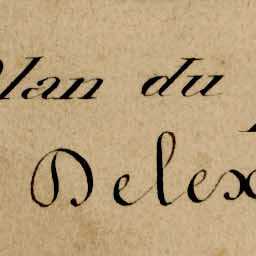 Plan du
Delex